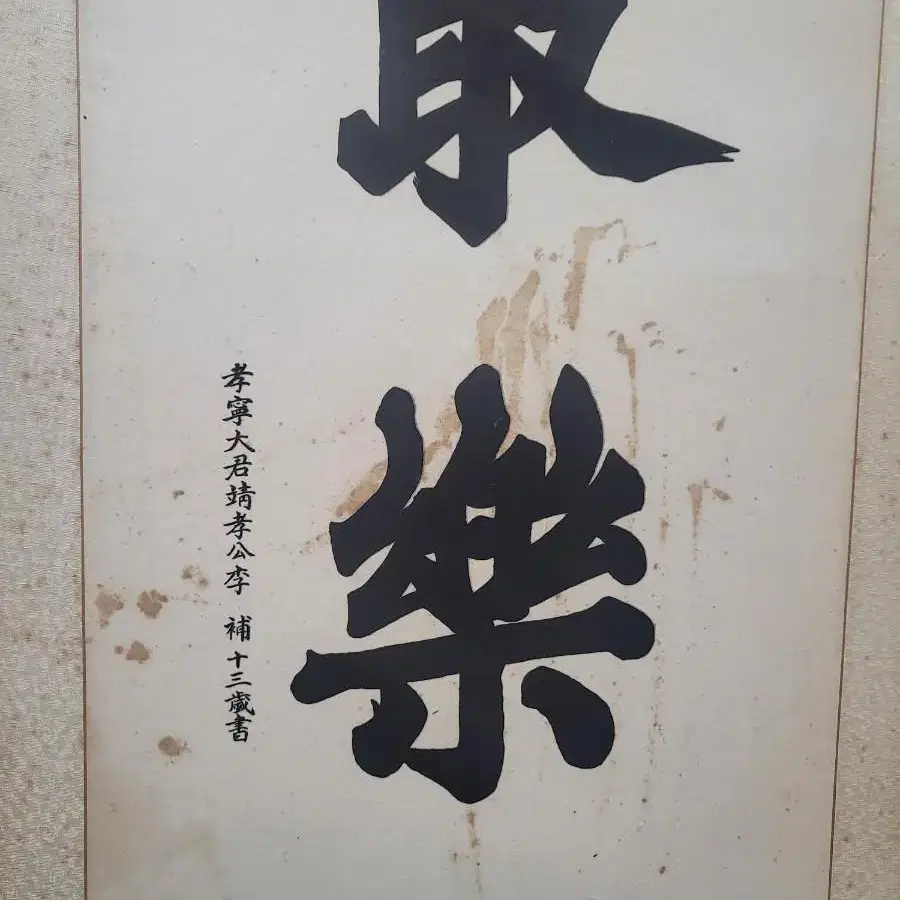 最樂
孝寧大君靖孝公李 補 十三歲書